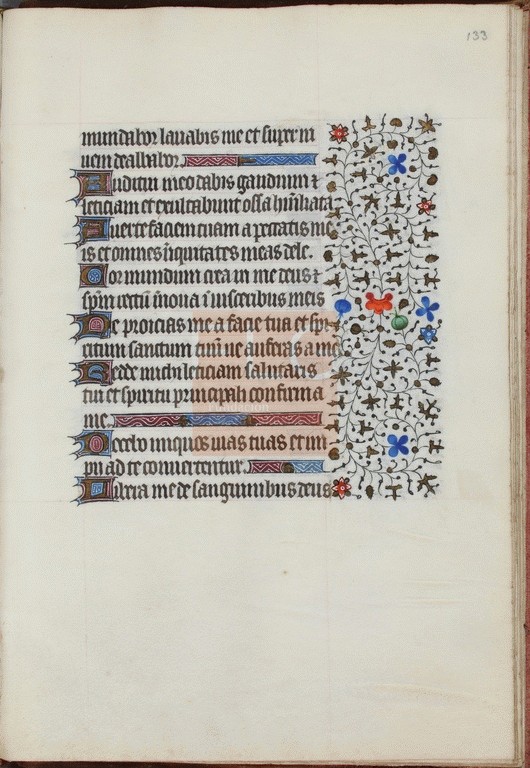 133
mundabor lavabis me et super ni
vem dealbabor.
Auditui meo dabis gaudium ⁊
leticiam et exultabunt ossa hu̅iliata
Averte faciem tuam a peccatis me
is et omnes iniquitates meas dele.
Cor mundum crea in me deus ⁊
sp̅m rectu̅ innova i̅ visceribus meis
Ne proicias me a facie tua et spi
ritum sanctum tuu̅ ne auferas a me
Redde michi leticiam salutaris
tui et spiritu principali confirma
me.
Docebo iniquos vias tuas et im
pii ad te convertentur.
Libera me de sanguinibus deus